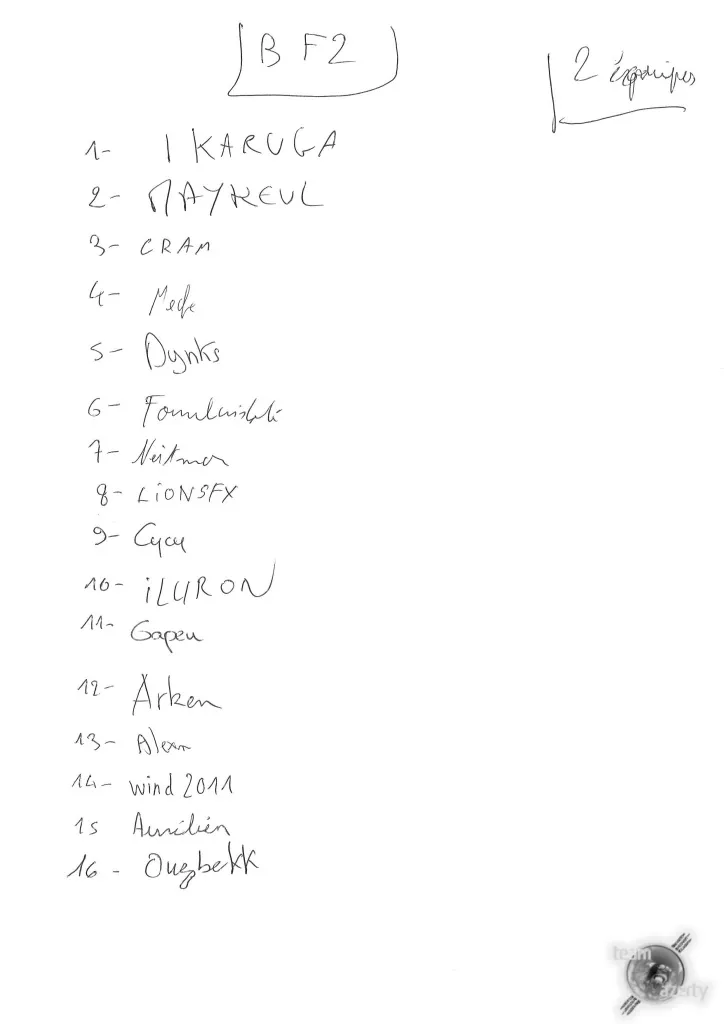 BF2
2 équipes
1- IKARUGA
2- MAYKEUL
3- CRAM
4-
5- Dynks
6-
7-
8- LiONSFX
9- Cycy
10- iLURON
11- Gapeu
12- Arken
13-
14- wind 2011
15 Aurélien
16- Ougbekk
team
azerty